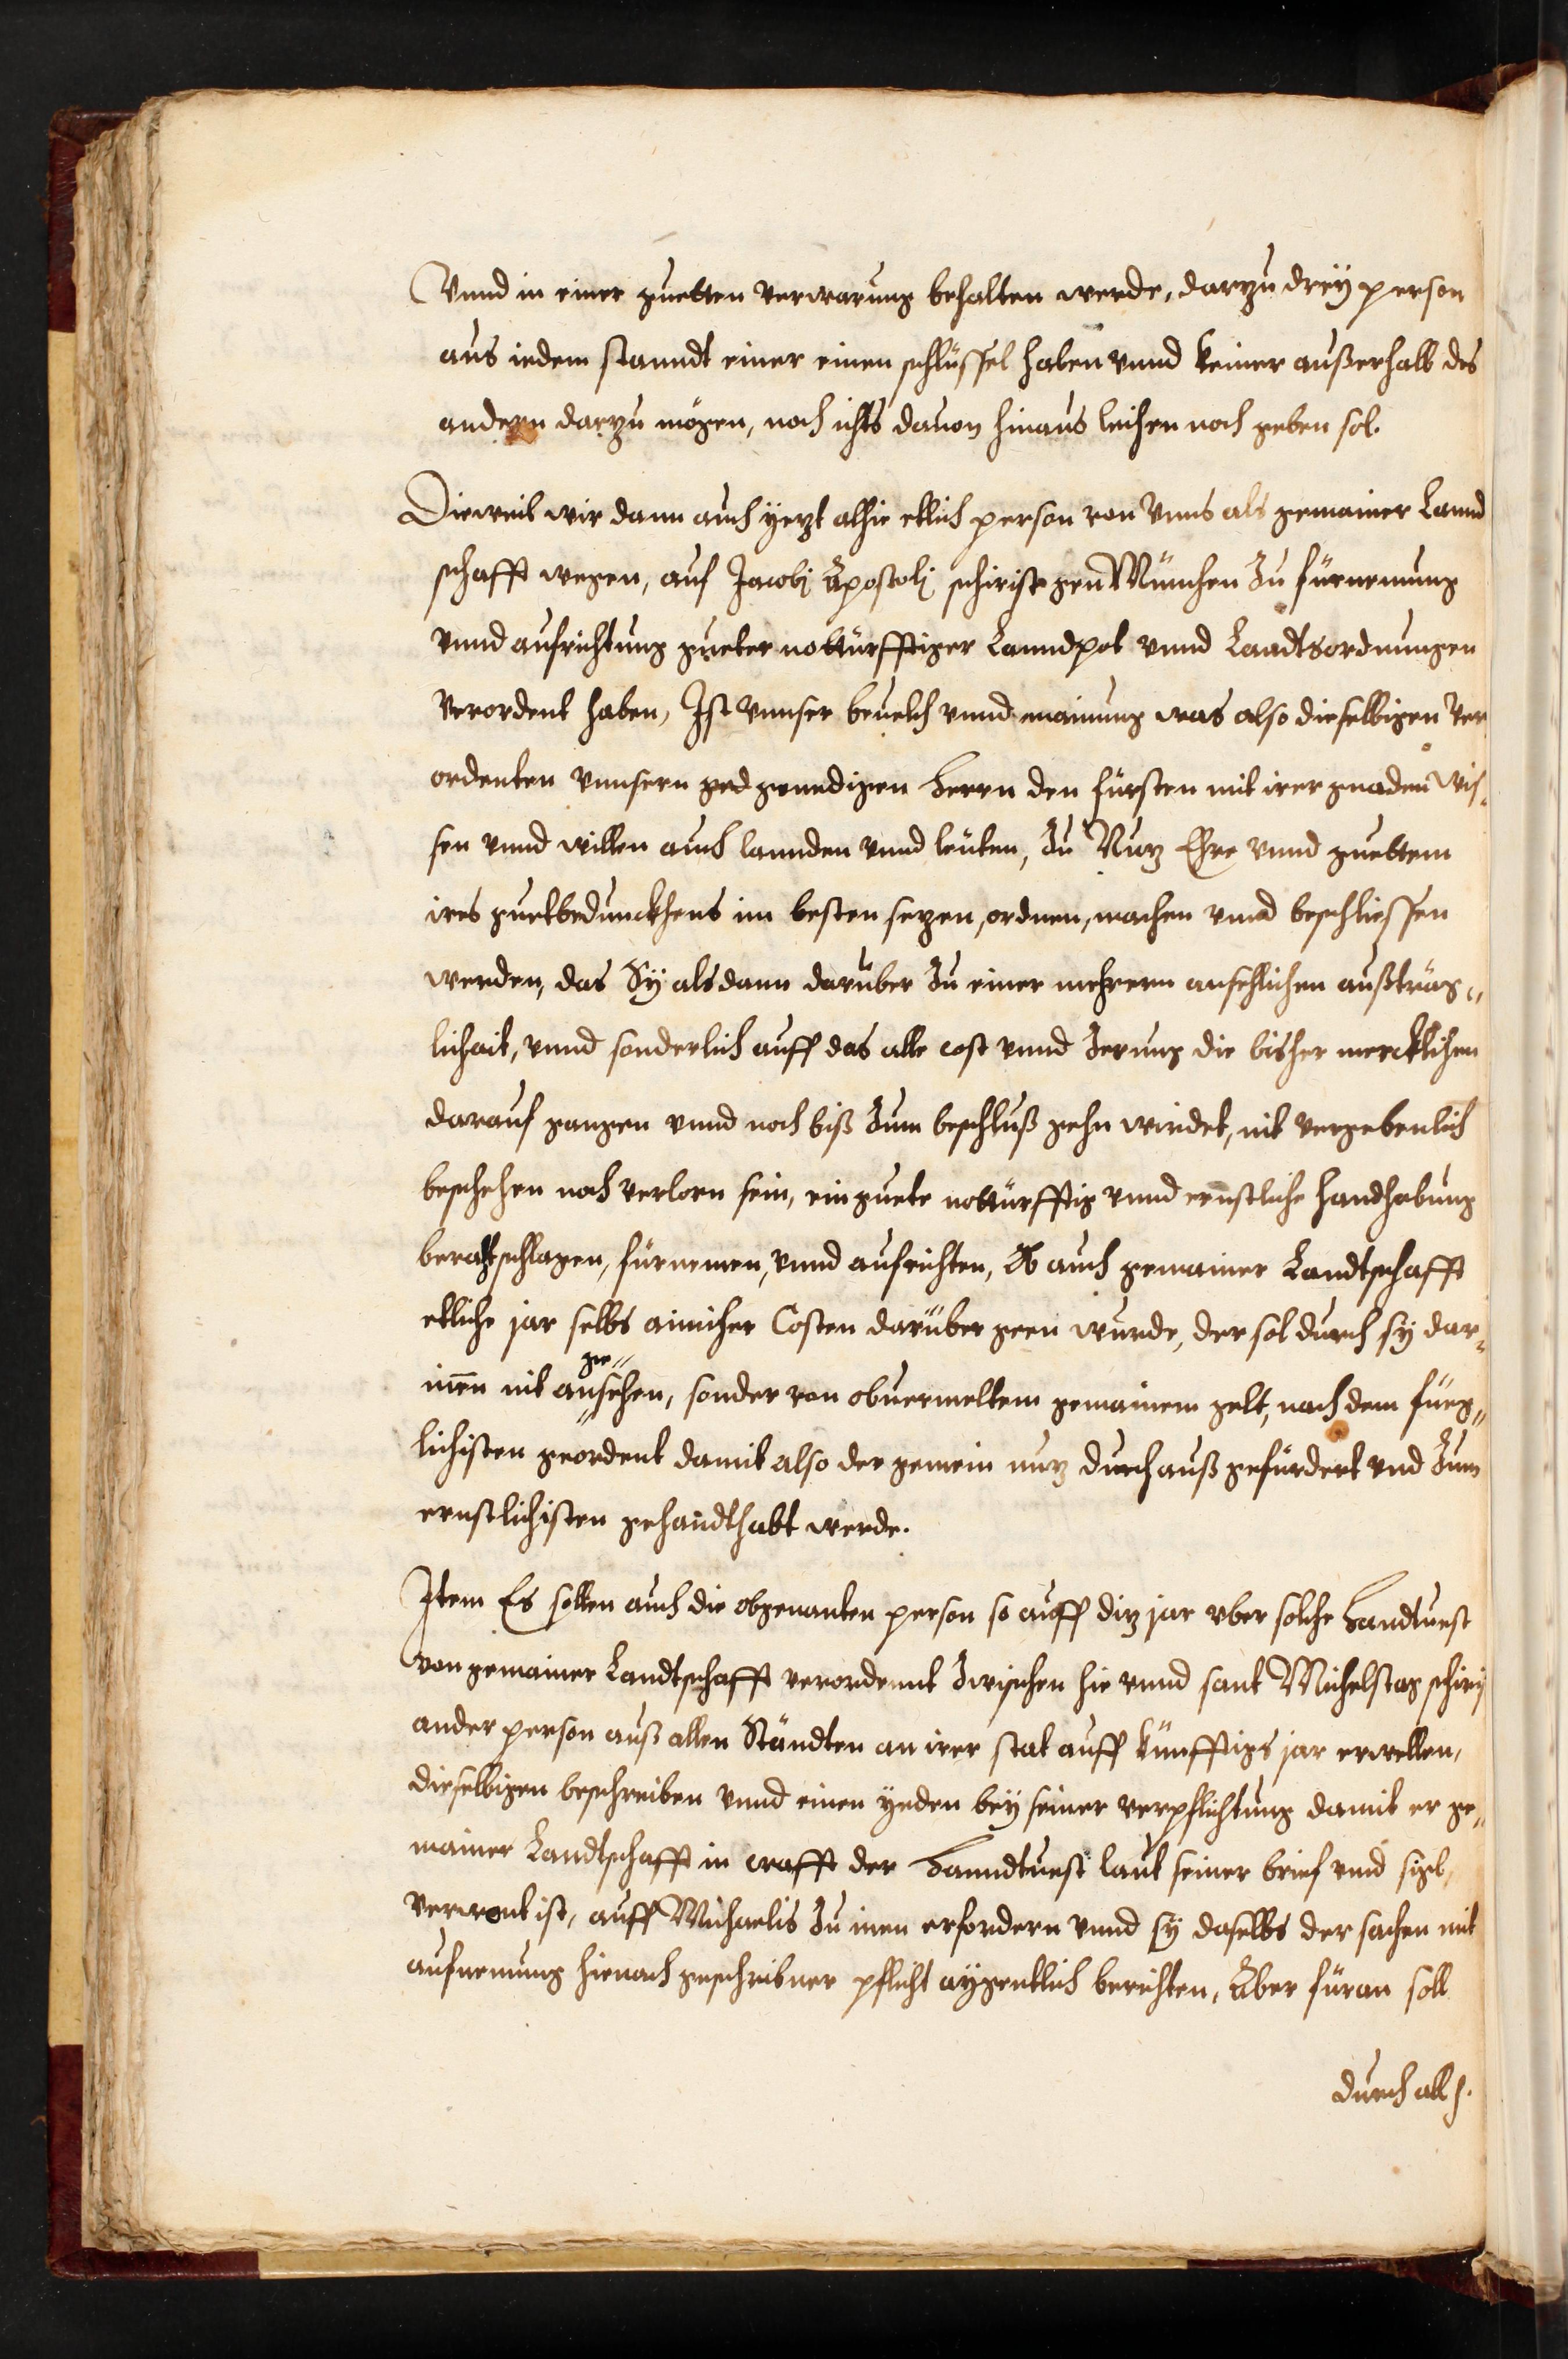 Vnnd in einer guetten verwarung behalten werde, darzu drey person
aus iedem standt einer einen schlüssel haben vnnd keiner außerhalb des
andern darzu mögen, noch ichts dauon hinaus leihen noch geben sol.
Dieweil wir dann auch yezt alhie etlich person von vnns als gemainer Lannd
schafft wegen, auf Jacobj Apostolj schirist gen München zu fürnemung
vnnd aufrichtung gueter notturfftiger Lanndpot vnnd Landtsordnungen
verordent haben, Ist vnnser beuelch vnnd mainung was also dieselbigen ver
ordenten vnnsern ged genedigen herrn den fürsten mit irer gnaden wis-
sen vnnd willen auch lannden vnnd leuten, zu Nuz Ehre vnnd guettem
ires guetbedunckhens im besten sezen, ordnen, machen vnnd beschliessen
werden, das Sy alsdann darüber zu einer mehrern ansehlichen außträg-
lichait, vnnd sonderlich auff das alle cost vnnd zerung die bisher mercklichen
darauf gangen vnnd noch biß zum beschluß gehn wirdet, nit vergebenlich
beschehen noch verlorn sein, ein guete notturfftig vnnd ernstliche handhabung
beratschlagen, fürnemen, vnnd aufrichten, Ob auch gemainer Landtschafft
etliche jar selbs ainicher Costen darüber geen wurde, der sol durch sy dar-
inen nit angesehen, sonder von obuermeltem gemainem gelt, nach dem füeg-
lichisten geordent damit also der gemein nuz durchauß gefürdert vnd zum
ernstlichisten gehandthabt werde.
Item Es sollen auch die obgenanten person so auff diz jar vber solche handtuest
von gemainer Landtschafft verordennt zwischen hie vnnd sant Michelstag schiri
ander person auß allen Ständten an irer stat auff künfftigs jar erwellen,
dieselbigen beschreiben vnnd einen yeden bey seiner verpflichtung damit er ge-
mainer Landtschafft in crafft der hanndtuest laut seiner brief vnd sigl,
verwont ist, auff Michaelis zu inen erfordern vnnd sy daselbs der sachen mit
aufnemung hienach geschribner pflicht aygentlich berichten, Aber füran soll
durch all